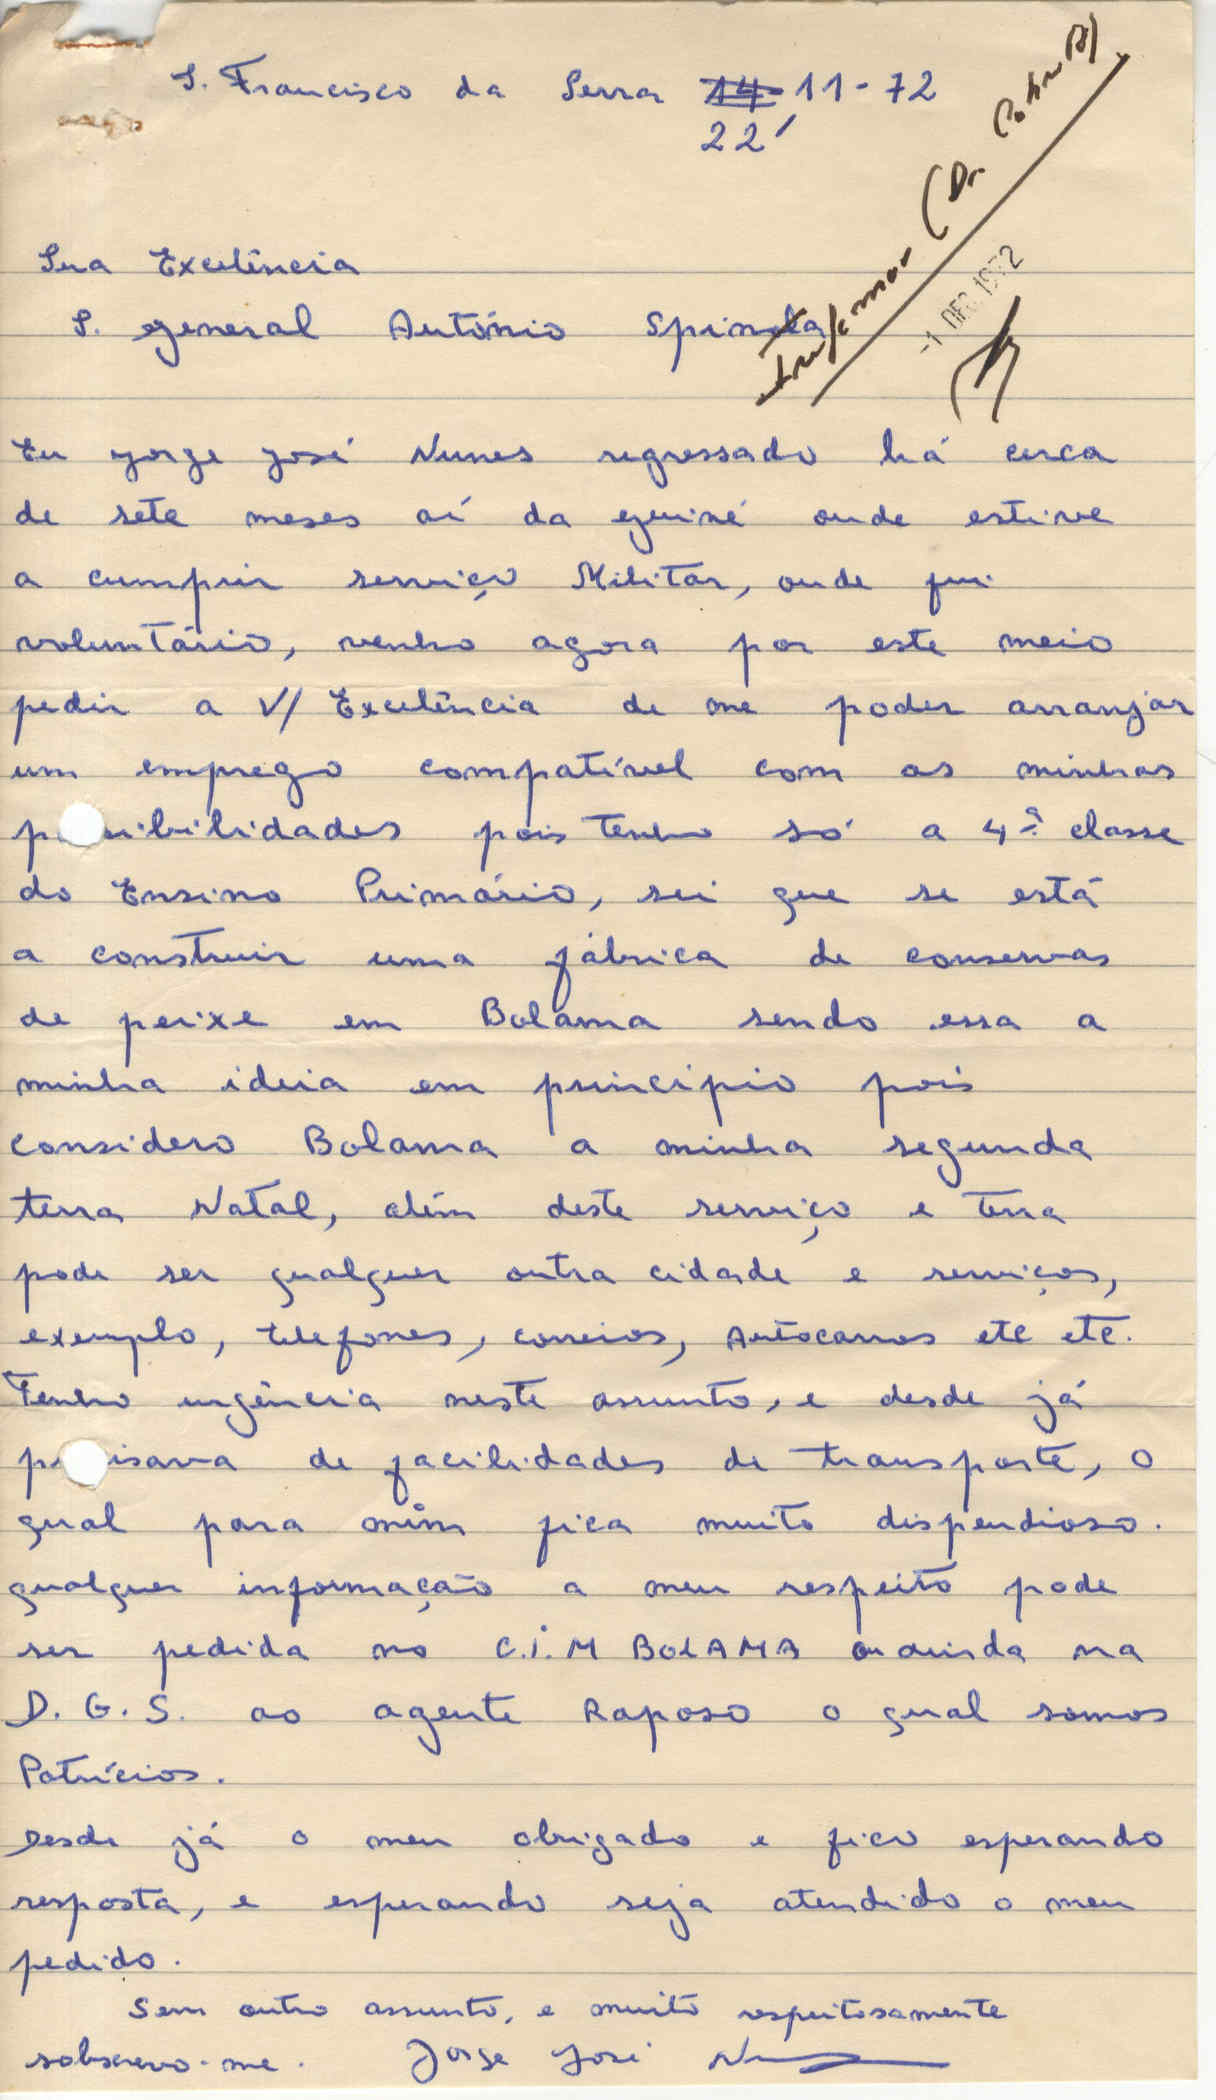 S. Francisco da Serra 14 11-72
22
Informar (Dr.
-1 DEC. 1972
Sua Excelência
S. general António Spinola
Eu Jorge José Nunes regressado há cerca
de sete meses aí da guiné onde estive
a cumprir serviço Militar, onde fui
voluntário, venho agora por este meio
pedir a V/ Excelência de me poder arranjar
um emprego compatível com as minhas
p sibilidades pois tenho só a 4ª classe
do Ensino Primário, sei que se está
a construir uma fábrica de conservas
de peixe em Bolama sendo essa a
minha ideia em princípio pois
considero Bolama a minha segunda
terra Natal, além deste serviço e terra
pode ser qualquer outra cidade e serviços,
exemplo, telefones, correios, Autocarros etc etc.
Tenho urgência neste assunto, e desde já
p isava de facilidades de transporte, o
qual para mim fica muito dispendioso.
qualquer informação a meu respeito pode
ser pedida no C.I.M BOLAMA ou ainda na
D.G.S. ao agente Raposo o qual somos
Patrícios.
Desde já o meu obrigado e fico esperando
resposta, e esperando seja atendido o meu
pedido.
Sem outro assunto, e muito respeitosamente
sobscrevo-me. Jorge José Nunes